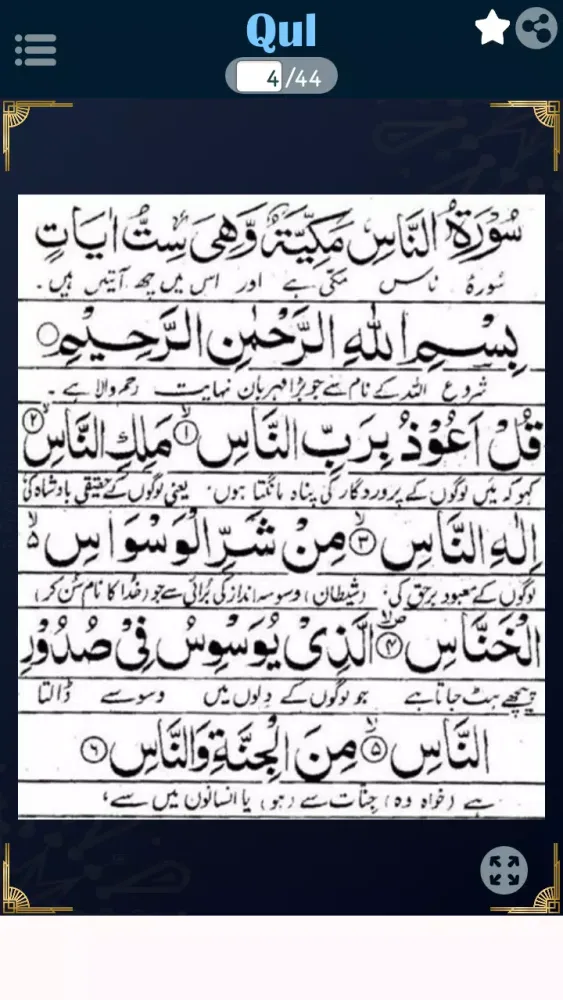 Qul
4/44
سُوْرَةُ النَّاسِ مَكِّيَّةٌ وَّهِیَ سِتُّ اٰيَاتٍ
سورۂ ناس مکّی ہے اور اس میں چھ آیتیں ہیں۔
بِسْمِ اللّٰهِ الرَّحْمٰنِ الرَّحِيْمِ
شروع اللہ کے نام سے جو بڑا مہربان نہایت رحم والا ہے۔
قُلْ اَعُوْذُ بِرَبِّ النَّاسِ ۱ مَلِكِ النَّاسِ ۲
کہو کہ میں لوگوں کے پروردگار کی پناہ مانگتا ہوں، یعنی لوگوں کے حقیقی بادشاہ کی
اِلٰهِ النَّاسِ ۳ مِنْ شَرِّ الْوَسْوَاسِ
لوگوں کے معبود برحق کی، (شیطان) وسوسہ انداز کی بُرائی سے جو (خدا کا نام سُن کر)
الْخَنَّاسِ ۴ الَّذِیْ يُوَسْوِسُ فِیْ صُدُوْرِ
پیچھے ہٹ جاتا ہے جو لوگوں کے دلوں میں وسوسے ڈالتا
النَّاسِ ۵ مِنَ الْجِنَّةِ وَالنَّاسِ ۶
ہے (خواہ وہ) جنات سے (ہو) یا انسانوں میں سے،